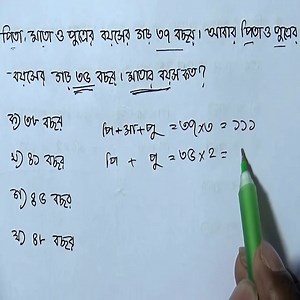 পিতা, মাতা ও পুত্রের বয়সের গড় ৩৭ বছর। আবার পিতা ও পুত্রের
বয়সের গড় ৩৫ বছর। মাতার বয়স কত?
ক) ৩৮ বছর
পি+মা+পু = ৩৭×৩ = ১১১
খ) ৪১ বছর
পি + পু = ৩৫×2 =
গ) ৪৫ বছর
ঘ) ৪৮ বছর